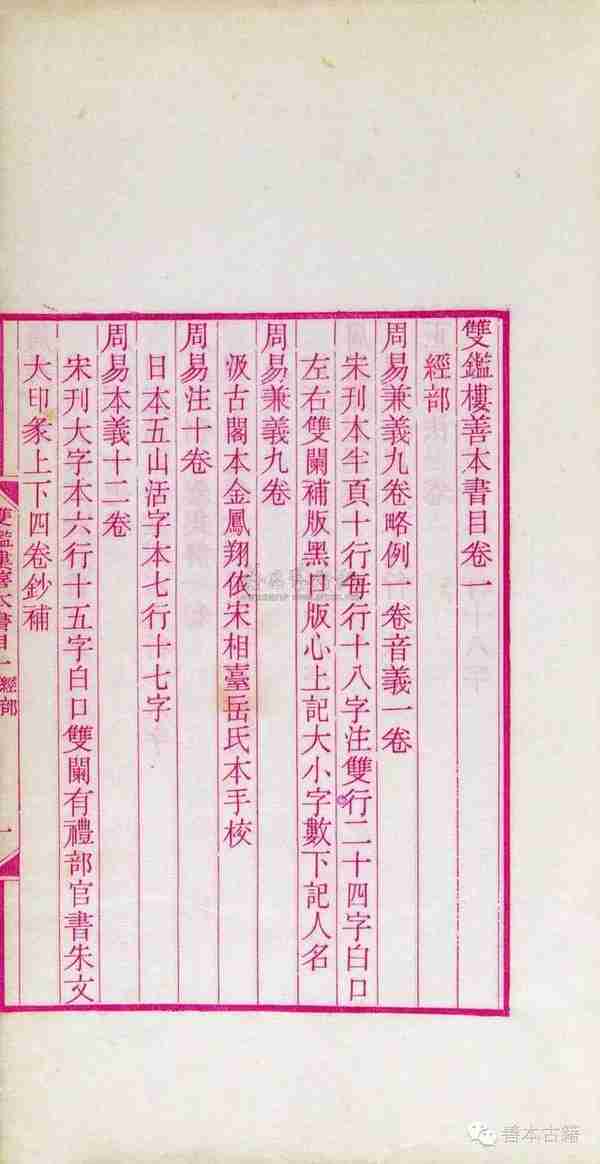 雙鑑樓善本書目卷一
經部
周易兼義九卷略例一卷音義一卷
宋刊本半頁十行每行十八字注雙行二十四字白口
左右雙闌補版黑口版心上記大小字數下記人名
周易兼義九卷
汲古閣本金鳳翔依宋相臺岳氏本手校
周易注十卷
日本五山活字本七行十七字
周易本義十二卷
宋刊大字本六行十五字白口雙闌有禮部官書朱文
大印彖上下四卷鈔補
雙鑑樓善本書目一 經部
一
善本古籍